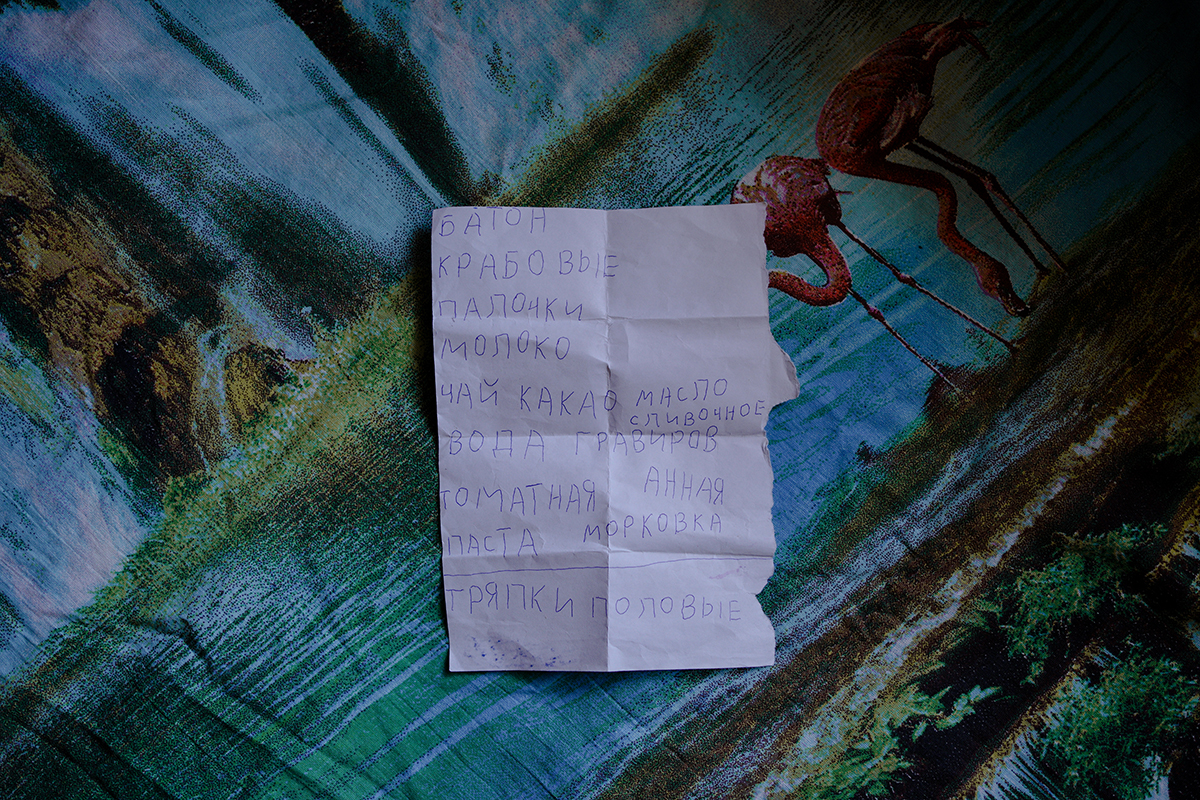 БАТОН
КРАБОВЫЕ
ПАЛОЧКИ
МОЛОКО
ЧАЙ КАКАО МАСЛО
СЛИВОЧНОЕ
ВОДА ГРАВИРОВ
АННАЯ
ТОМАТНАЯ
ПАСТА МОРКОВКА
ТРЯПКИ ПОЛОВЫЕ